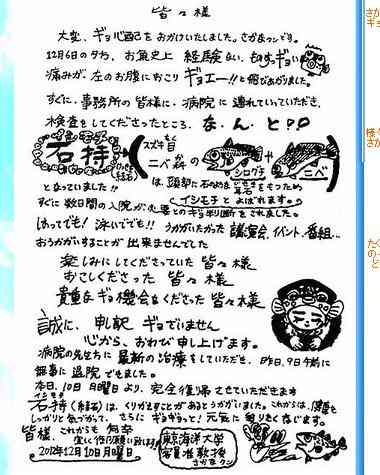 皆々様
大変、ギョ心配をおかけいたしました。さかなクンです。
12月6日の夕方、お魚史上 経験ない、ものすギョい
痛みが 左のお腹におこり ギョエー!!と飛びあがりました。
すぐに、事務所の皆様に、病院に 連れていっていただき、
検査をしてくださったところ、な・ん・と??
石持
スズキ目
ニベ科の
シログチ
や
ニベ
となっていました!!
は、頭部に石のような耳石をもつため
イシモチとよばれます。
すぐに数日間の入院が必要とのギョ判断をされました。
はってでも! 泳いででも!! うかがいたかった 講演会、イベント、番組...
おうかがいすることが 出来ませんでした
楽しみにしてくださっていた 皆々様
お越しくださった 皆々様
貴重なギョ機会をくださった 皆々様
誠に、申し訳 ギョざいません
心から、おわび申し上げます。
病院の先生方に 最新の治療をしていただき、昨日、9日午前に
無事に退院 できました。
本日、10日 月曜日より、完全復帰 させていただきます
石持(結石)は、くりかえすことがあるとうかがいました。これからは、
しっかりと気づかって、さらにギョギョッと! 元気に
皆様、これからも 何卒
宜しく御願い致します
2012年12月10日月曜日
東京海洋大学
客員准教授
さかなクン